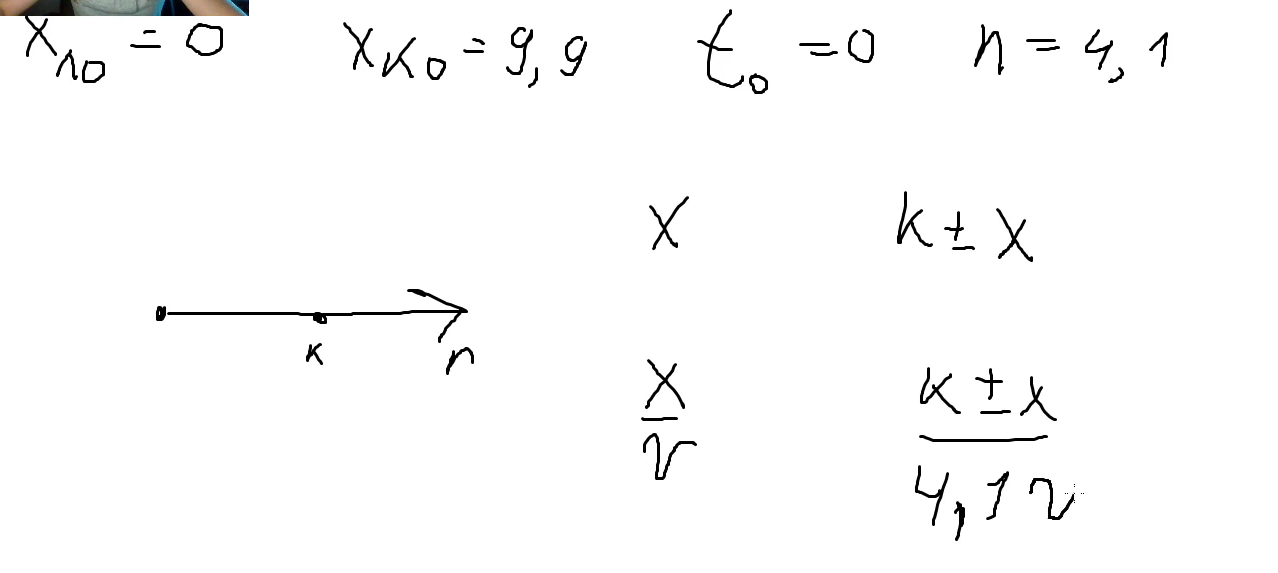 x₁₀ = 0 x_K₀ = 9,9 t₀ = 0 n = 4,1
x k ± x
K n
x/v (K ± x)/(4,1 v)